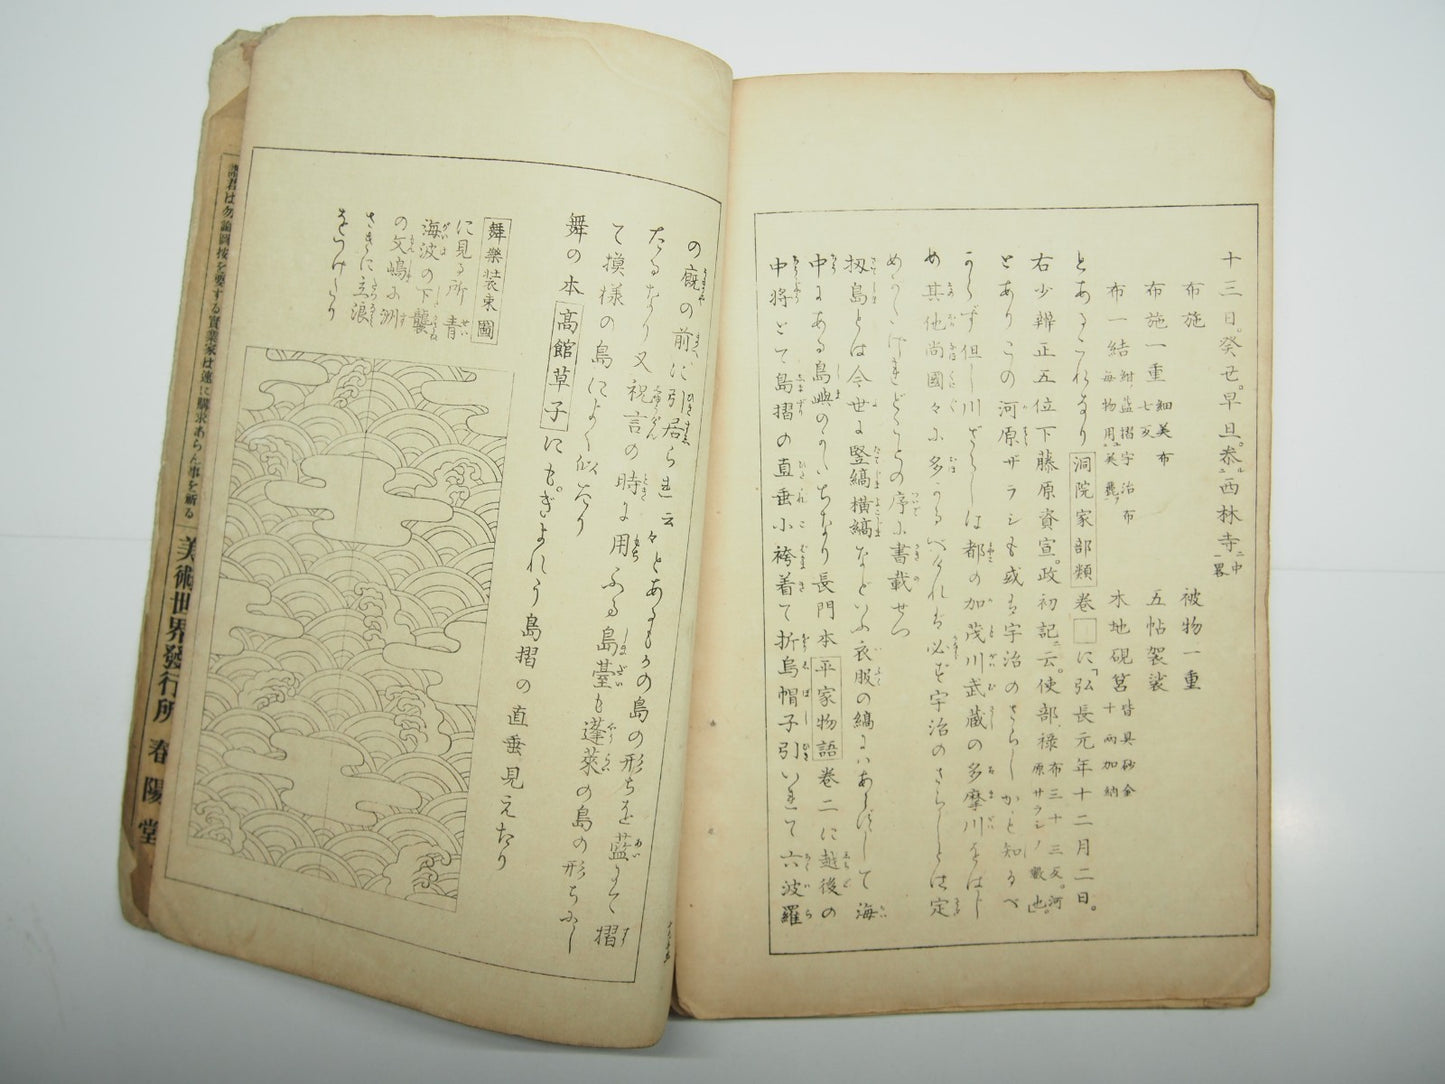 十三日。癸丑。早旦。参西林寺中略
布施　被物一重
布施一重 細美布七反　五帖袈裟 皆具砂金十両加納
布一結 紺藍摺宇治布毎物用美麗　水地硯筥
とあるこれなり洞院家部類卷□に「弘長元年十二月二日。
右少辨正五位下藤原資宣。政初記云。使部、禄布三十三反。河原サラシノ敷也。」
とありこの河原ザラシも或は宇治のさらしかと知るべ
からず但し川ざらしは都の加茂川武蔵の多摩川をはじ
め其他尚國々に多かるべければ必ず宇治のさらしとは定
めがたければどことの序に書載せつ
扨島とは今世に竪縞横縞などいふ衣服の縞にはあらずして海
中にある島嶼のかたちなり長門本平家物語卷二に越後の
中将とて島摺の直垂小袴着て折烏帽子引いれて六波羅
の廐の前に引居られ云々とあるもかの島の形ちを藍にて摺
たるなり又祝言の時に用ふる島臺も蓬莱の島の形ちにし
て摸様の島によく似たり
舞の本高館草子にも。ぎよれう島摺の直垂見えたり
舞樂装束圖
に見る所青
海波の下襲
の文嶋に洲
さきに立浪
をつけたり
諸君は勿論圖按を要する實業家は速に購求あらん事を祈る
美術世界發行所　春陽堂